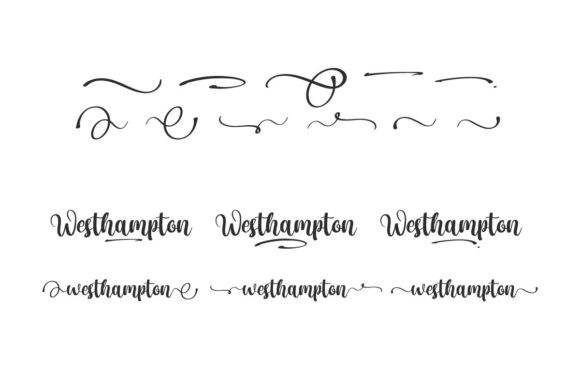 Westhampton Westhampton Westhampton
westhampton westhampton westhampton